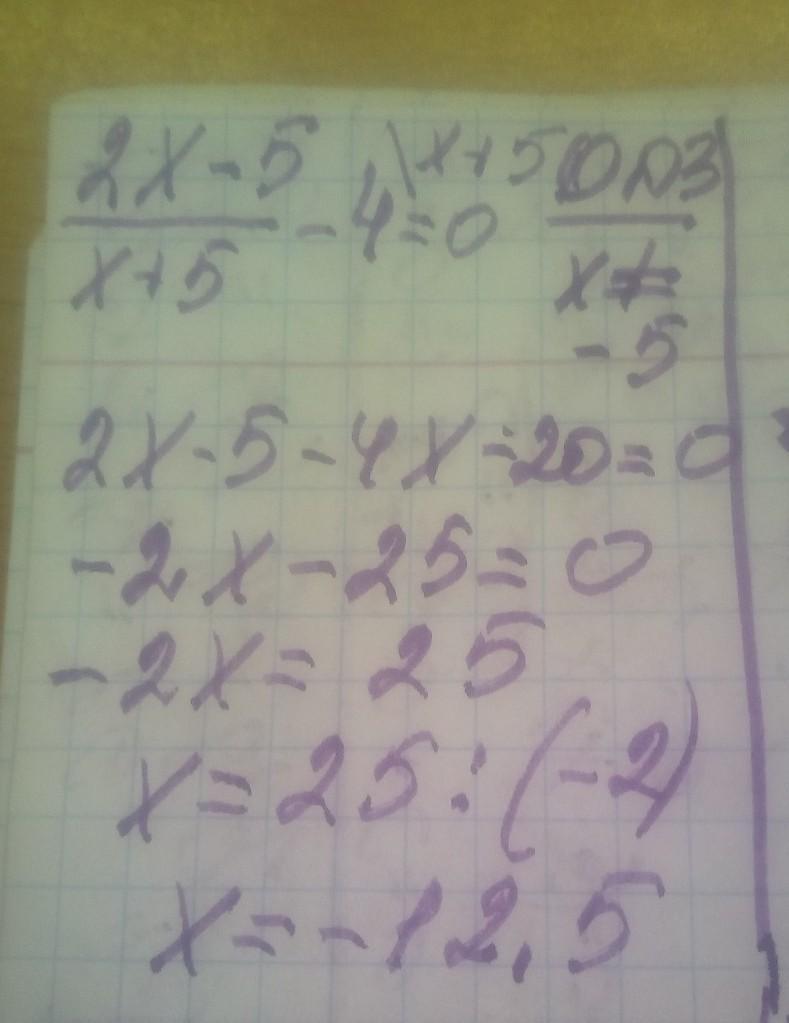 2x-5 \x+5 ОДЗ
—— - 4 = 0
x+5 x≠
-5
2x-5-4x-20=0
-2x-25=0
-2x=25
x=25:(-2)
x=-12,5